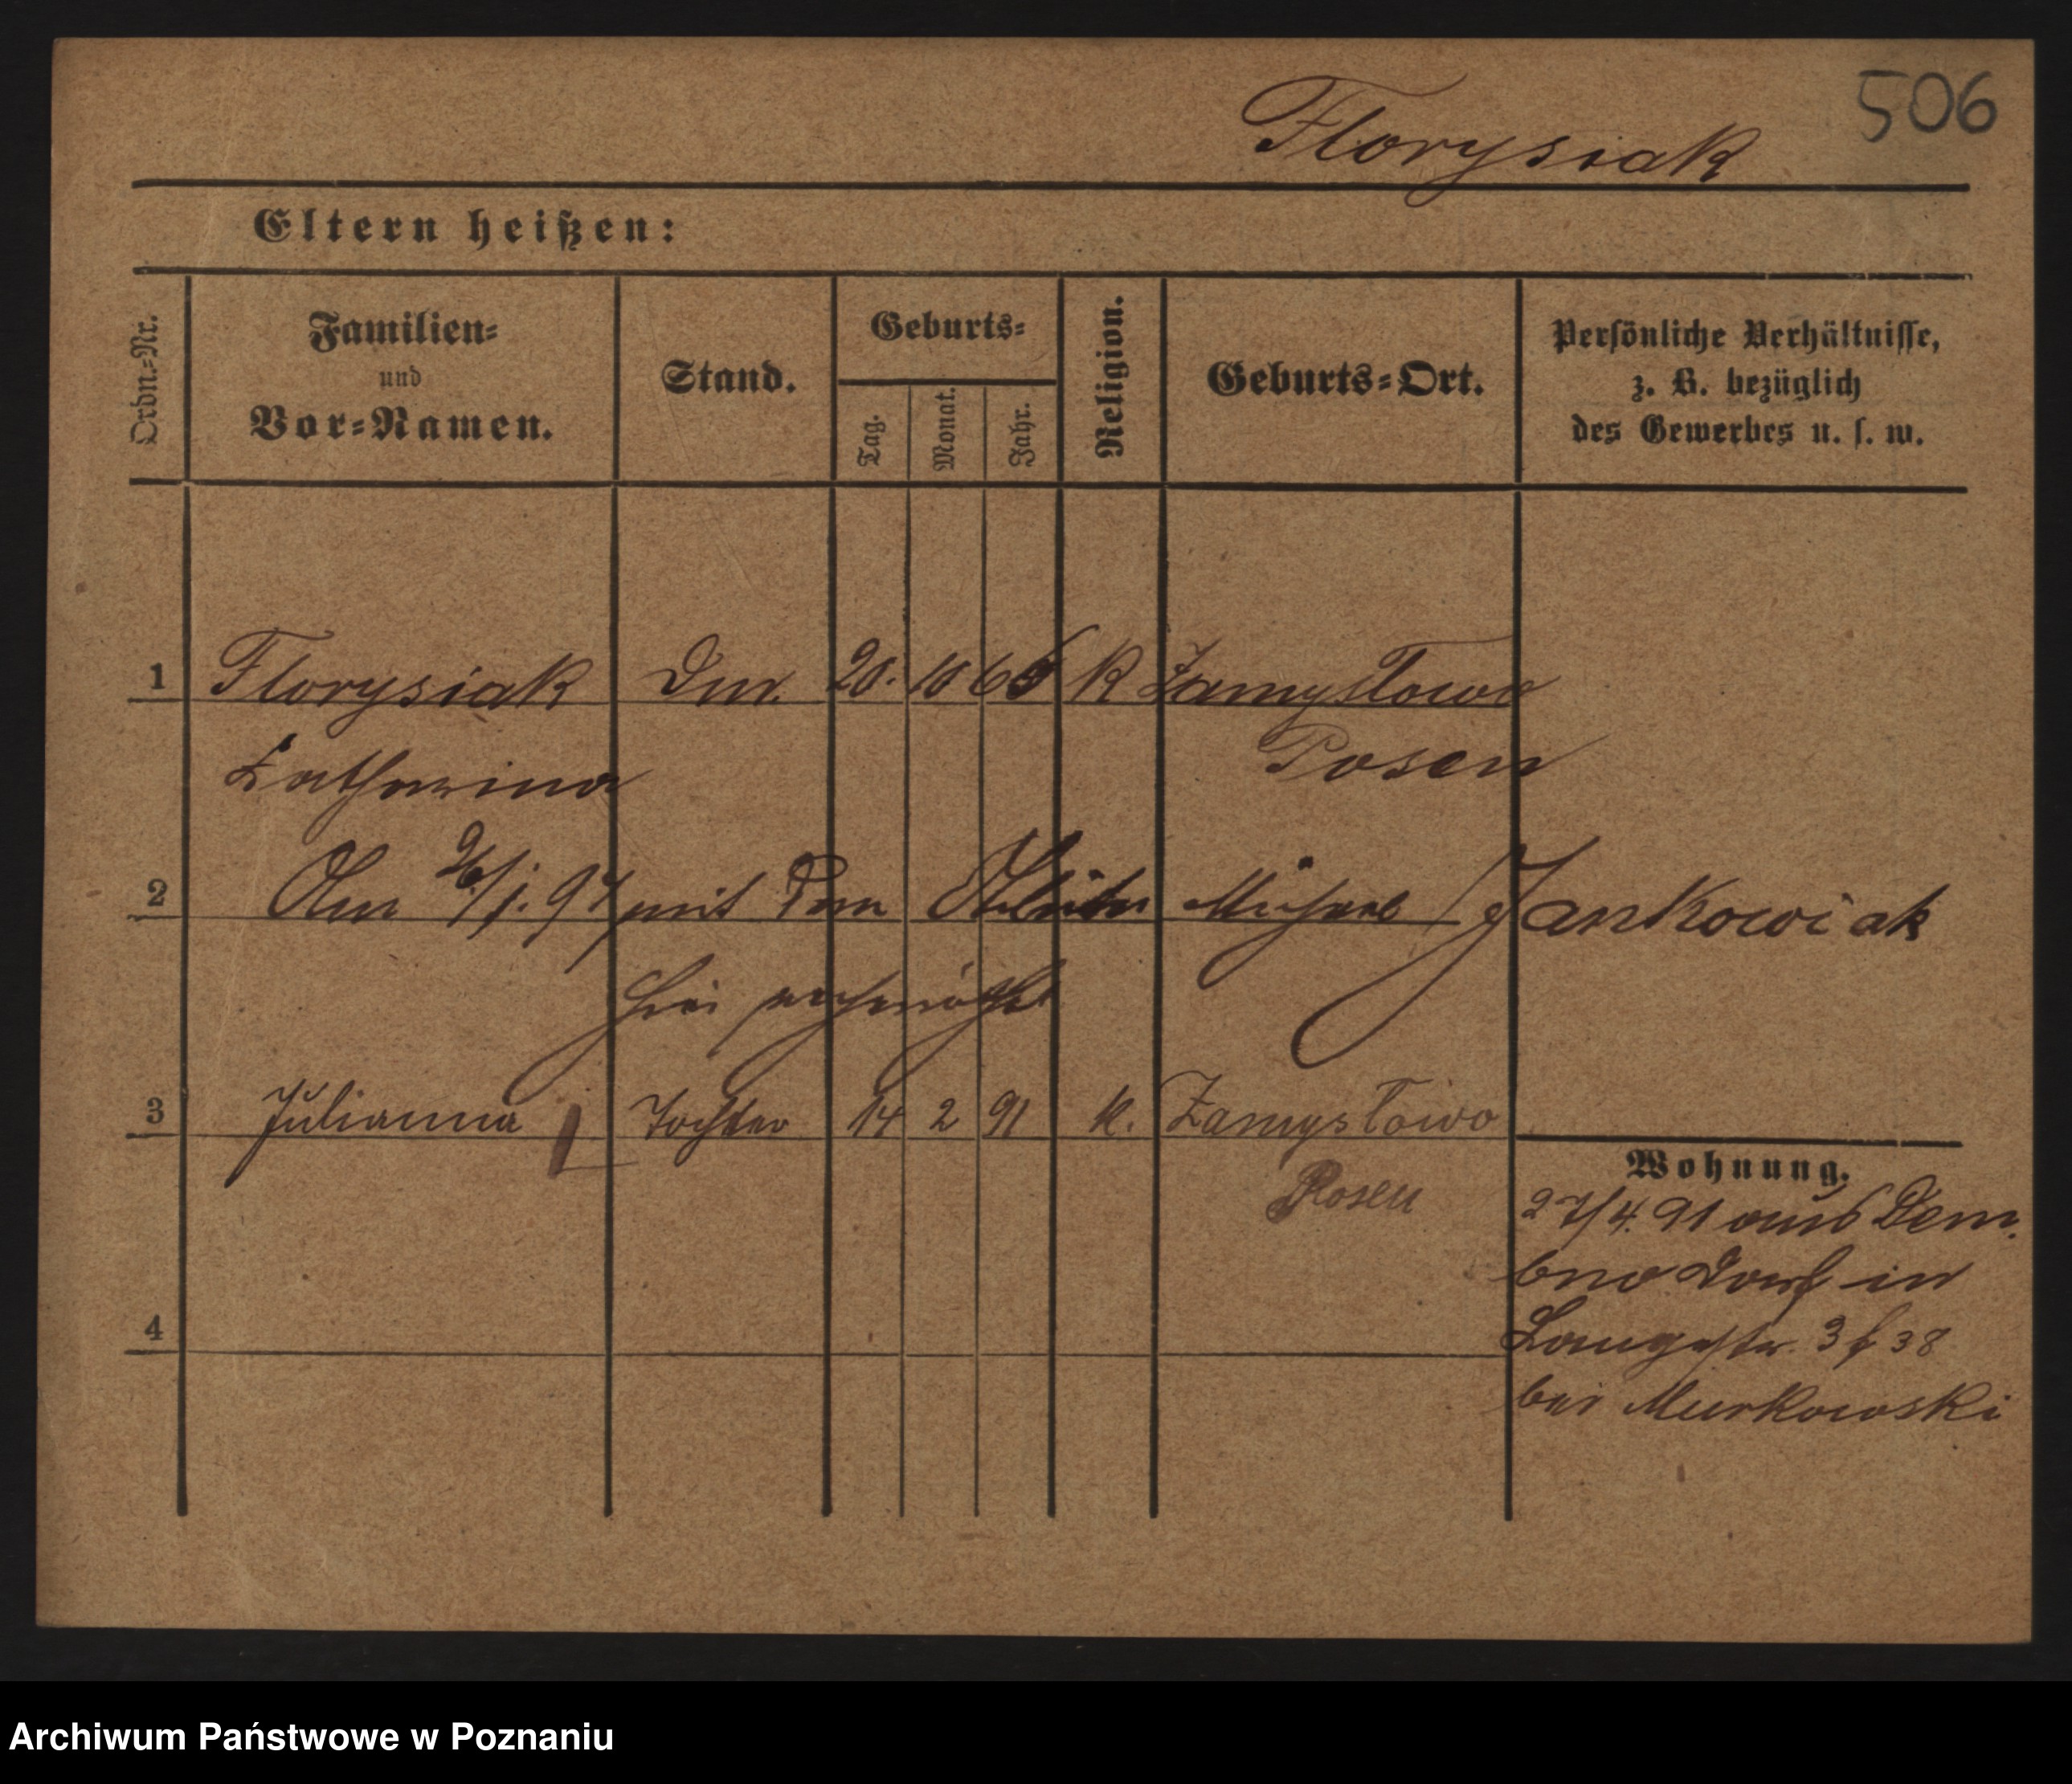 506
Florysiak
Eltern heißen:
Ordn.-Nr.
Familien-
und
Vor-Namen.
Stand.
Geburts-
Tag.
Monat.
Jahr.
Religion.
Geburts-Ort.
Persönliche Verhältnisse,
z. B. bezüglich
des Gewerbes u. s. w.
1 Florysiak 20. 10 K Zamysłowo
Katharina Posen
2 Am 26/1. 97 mit dem Arbeiter Michael Jankowiak
hier
3 Julianna Tochter 14 2 91 K. Zamysłowo
Posen
Wohnung.
27/4. 91 aus Dem-
bno Dorf in
Langestr. 3 38
bei Murkowski
4
Archiwum Państwowe w Poznaniu